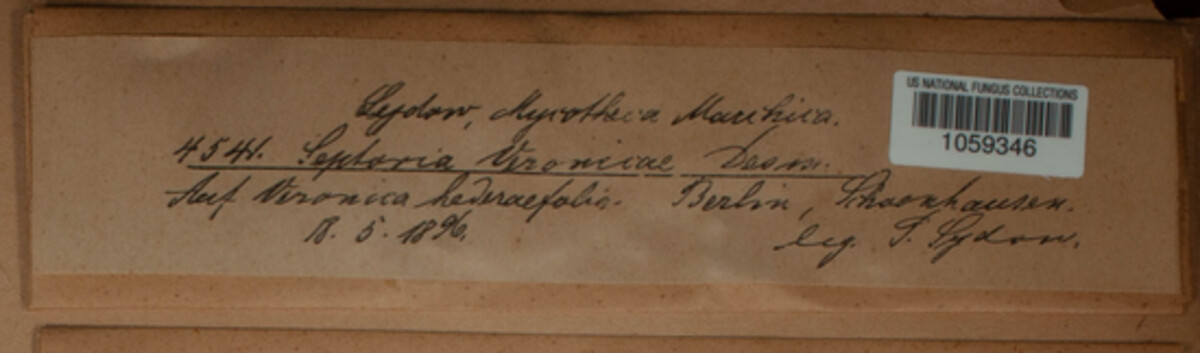 Sydow, Mycotheca Marchica.
4541. Septoria Veronicae Desm.
Auf Veronica hederaefolia. Berlin, Schoenhausen.
18. 5. 1896.
leg. P. Sydow.
US NATIONAL FUNGUS COLLECTIONS
1059346